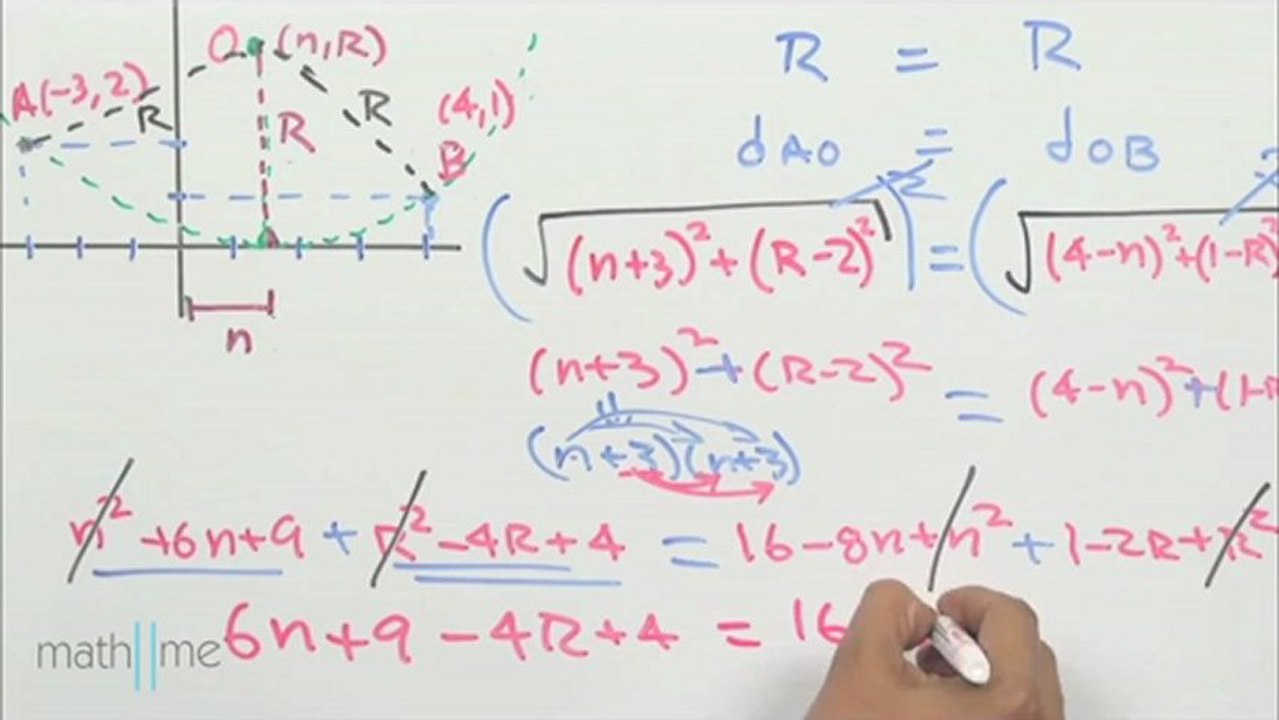 O (n,R)
A(-3,2)
R
R
R
(4,1)
B
n
R = R
dAO = dOB
(√(n+3)²+(R-2)²)² = (√(4-n)²+(1-R)²
(n+3)²+(R-2)² = (4-n)²+(1-
(n+3)(n+3)
n²+6n+9 + R²-4R+4 = 16-8n+n²+1-2R+R²
6n+9-4R+4 = 16
math||me